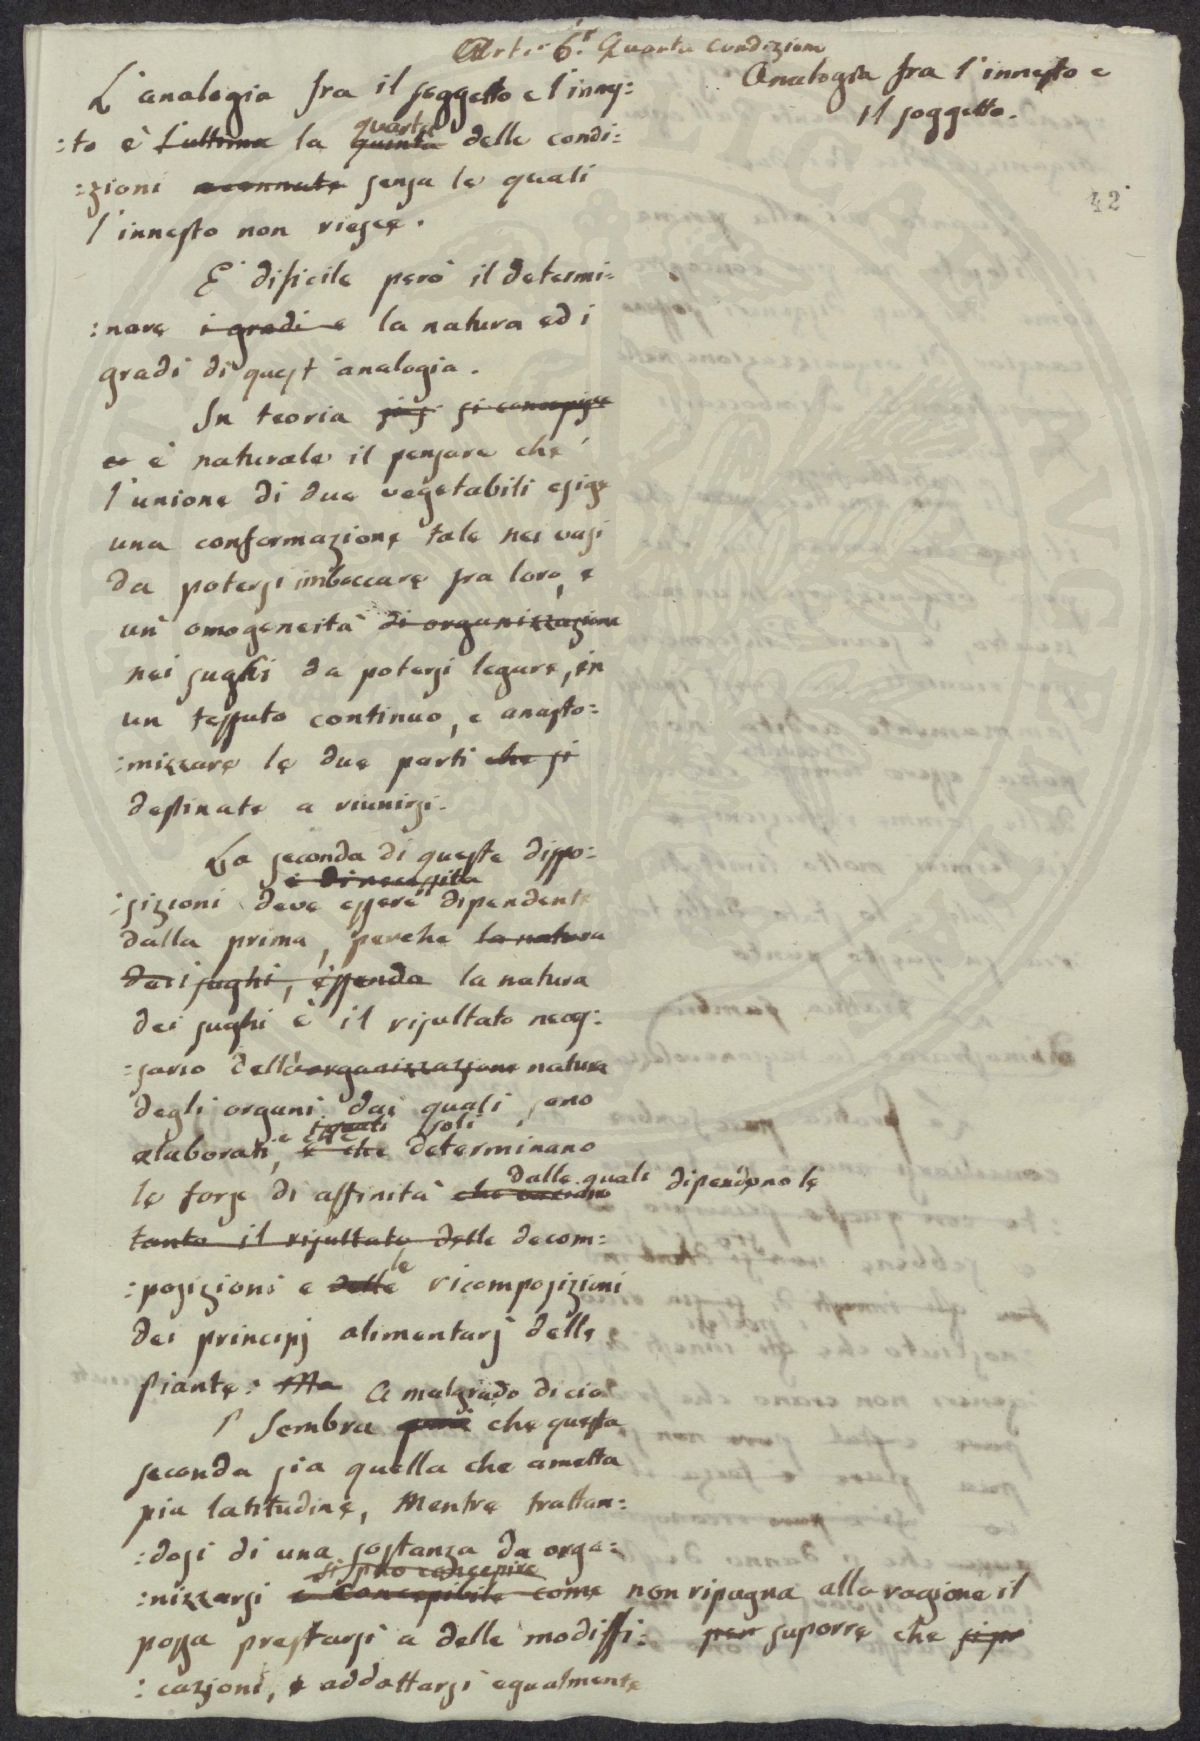 Art.º 6.º Quarta Condizione
Analogia fra l'innesto e
il soggetto.
42
L'analogia fra il soggetto e l'innes:
:to è l'ultima la quinta quarta delle condi:
:zioni accennate senza le quali
l'innesto non riesce.
E' dificile però il determi:
:nare i gradi e la natura ed i
gradi di quest'analogia.
In teoria si concepisce
è naturale il pensare che
l'unione di due vegetabili esige
una conformazione tale nei vasi
da potersi imboccare fra loro, e
un'omogeneità di organizzazione
nei sughi da potersi legare, in
un tessuto continuo, e anasto:
:mizzare le due parti che si
destinate a riunirsi.
La seconda di queste dispo:
è di necessità
:sizioni deve essere dipendente
dalla prima, perche la natura
dei sughi, essendo la natura
dei sughi è il risultato neces:
:sario dell'organizzazione natura
degli organi dai quali sono
soli
elaborati, e che determinano
dalle quali dipendono le
le forze di affinità che
tanto il risultato delle decom:
:posizioni e delle le ricomposizioni
dei principj alimentarj delle
Piante: Ma A malgrado di ciò
Sembra che questa
seconda sia quella che ametta
più latitudine, Mentre trattan:
:dosi di una sostanza da orga:
si può concepire
:nizzarsi è concepibile come non ripugna alla ragione il
possa prestarsi a delle modiffi: per suporre che
:cazioni, e addattarsi egualmente